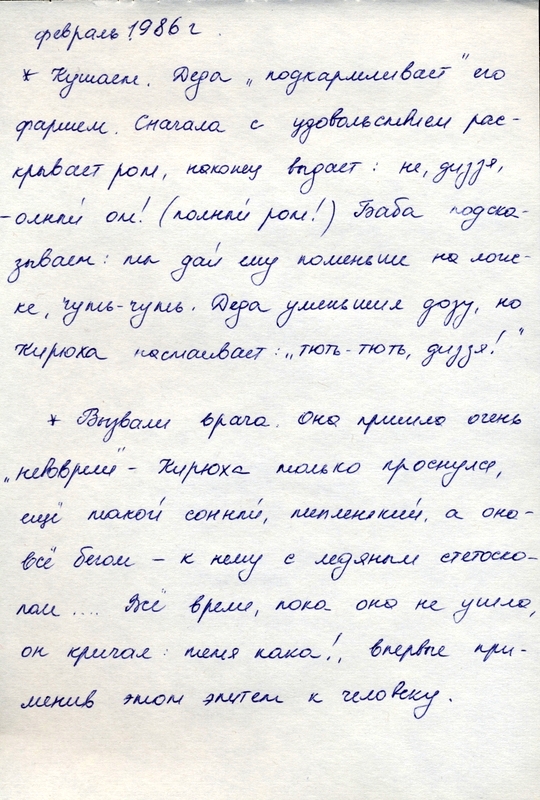 февраль 1986 г.
* Кушаем. Деда „подкармливает" его
фаршем. Сначала с удовольствием рас-
крывает рот, наконец выдает: не, дизя,
-олный от! (полный рот!) Баба подска-
зывает: ты дай ему поменьше на лож-
ке, чуть-чуть. Деда уменьшил дозу, но
Кирюха настаивает: „тють-тють, диззя!"
* Вызвали врача. Она пришла очень
„невоврем" - Кирюха только проснулся,
ещё такой сонный, тепленький, а она -
всё бегом - к нему с ледяным стетоско-
пом .... Всё время, пока она не ушла,
он кричал: тетя кака!, впервые при-
менив этот эпитет к человеку.